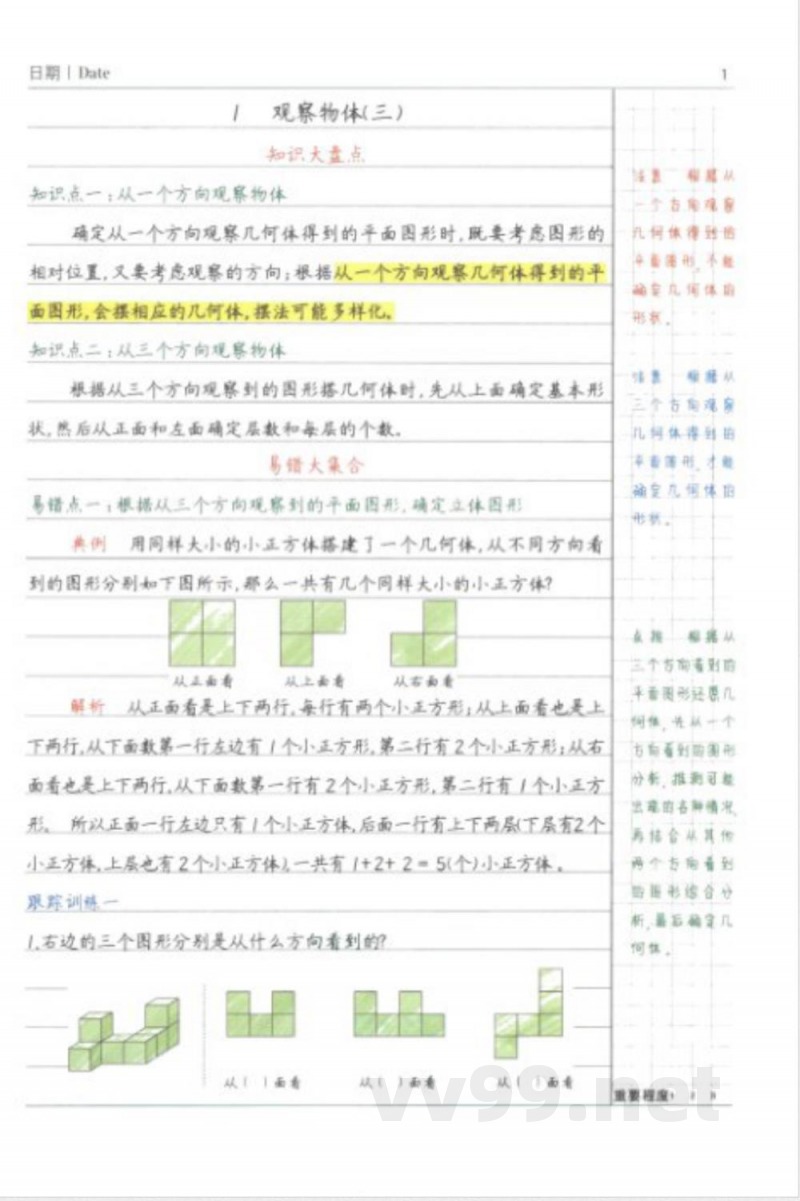 日期 | Date
1
1 观察物体(三)
知识大盘点
知识点一:从一个方向观察物体
确定从一个方向观察几何体得到的平面图形时,既要考虑图形的
相对位置,又要考虑观察的方向;根据从一个方向观察几何体得到的平
面图形,会摆相应的几何体,摆法可能多样化。
知识点二:从三个方向观察物体
根据从三个方向观察到的图形搭几何体时,先从上面确定基本形
状,然后从正面和左面确定层数和每层的个数。
易错大集合
易错点一:根据从三个方向观察到的平面图形,确定立体图形
典例 用同样大小的小正方体搭建了一个几何体,从不同方向看
到的图形分别如下图所示,那么一共有几个同样大小的小正方体?
从正面看 从上面看 从右面看
解析 从正面看是上下两行,每行有两个小正方形;从上面看也是上
下两行,从下面数第一行左边有1个小正方形,第二行有2个小正方形;从右
面看也是上下两行,从下面数第一行有2个小正方形,第二行有1个小正方
形。 所以正面一行左边只有1个小正方体,后面一行有上下两层(下层有2个
小正方体,上层也有2个小正方体),一共有1+2+2=5(个)小正方体。
跟踪训练一
1.右边的三个图形分别是从什么方向看到的?
从( )面看 从( )面看 从( )面看
注意 根据从
一个方向观察
几何体得到的
平面图形,不能
确定几何体的
形状。
注意 根据从
三个方向观察
几何体得到的
平面图形,才能
确定几何体的
形状。
点拨 根据从
三个方向看到的
平面图形还原几
何体,先从一个
方向看到的图形
分析,推测可能
出现的各种情况,
再结合从其他
两个方向看到
的图形综合分
析,最后确定几
何体。
重要程度 1 2 3
vv99.net